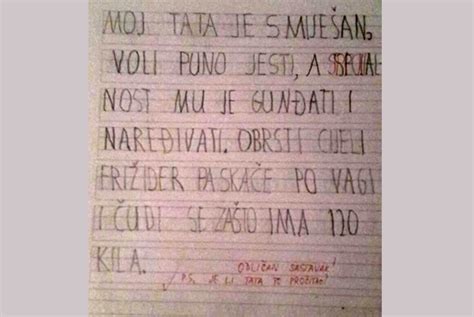 MOJ TATA JE SMIJEŠAN,
VOLI PUNO JESTI, A SPECIJAL
NOST MU JE GUNĐATI I
NAREĐIVATI. OBRSTI CIJELI
FRIŽIDER PA SKAČE PO VAGI
I ČUDI SE ZAŠTO IMA 120
KILA.
ODLIČAN SASTAVAK!
PS. JE LI TATA TO PROČITAO?